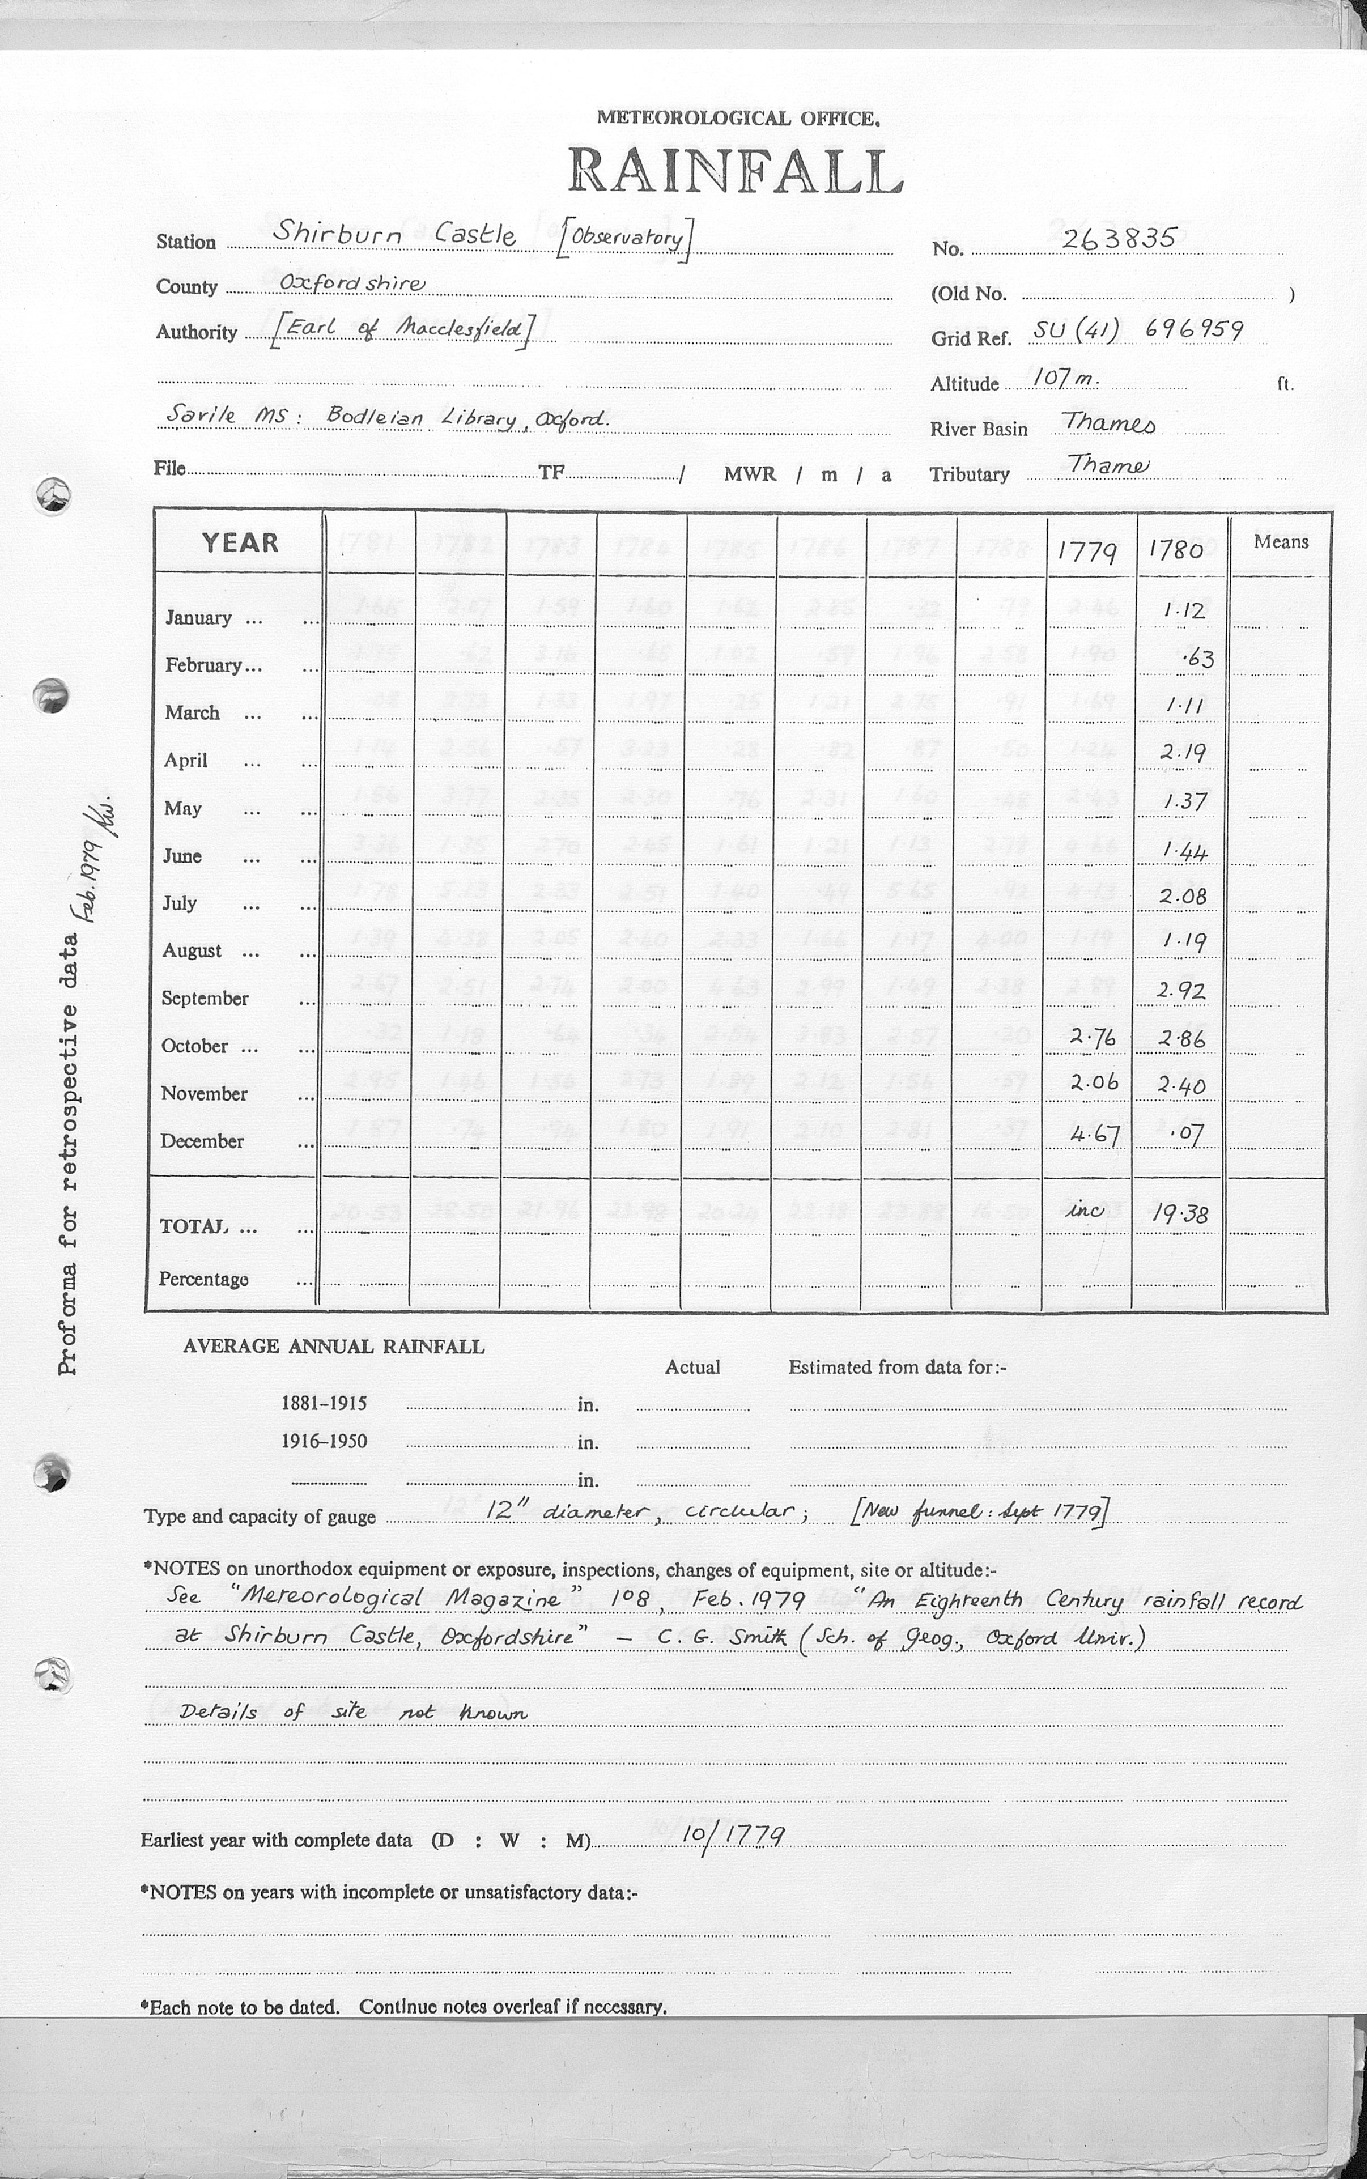 METEOROLOGICAL OFFICE.
RAINFALL
Station Shirburn Castle [Observatory] No. 263835
County Oxfordshire (Old No. )
Authority [Earl of Macclesfield] Grid Ref. SU (41) 696959
Altitude 107 m. ft.
Savile MS: Bodleian Library, Oxford. River Basin Thames
File TF / MWR / m / a Tributary Thame
YEAR 1779 1780 Means
January ... ... 1.12
February... ... .63
March ... ... 1.11
April ... ... 2.19
May ... ... 1.37
June ... ... 1.44
July ... ... 2.08
August ... ... 1.19
September ... 2.92
October ... ... 2.76 2.86
November ... 2.06 2.40
December ... 4.67 .07
TOTAL ... ... inc 19.38
Percentage ...
Proforma for retrospective data Feb. 1979 /Kw.
AVERAGE ANNUAL RAINFALL
Actual Estimated from data for:-
1881–1915 in.
1916–1950 in.
in.
Type and capacity of gauge 12" diameter, circular; [New funnel: Sept 1779]
*NOTES on unorthodox equipment or exposure, inspections, changes of equipment, site or altitude:-
See "Meteorological Magazine" 108, Feb. 1979 "An Eighteenth Century rainfall record
at Shirburn Castle, Oxfordshire" – C. G. Smith (Sch. of Geog., Oxford Univ.)
Details of site not known
Earliest year with complete data (D : W : M) 10/1779
*NOTES on years with incomplete or unsatisfactory data:-
*Each note to be dated. Continue notes overleaf if necessary.